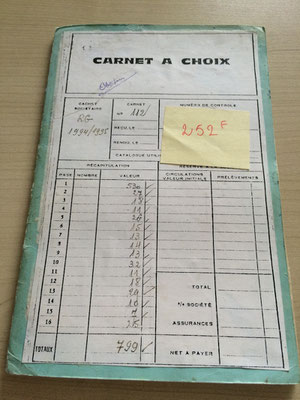 CARNET A CHOIX
CACHET SOCIÉTAIRE
RG
1994/1995
CARNET
N° 112
REÇU LE
RENDU LE
NUMÉRO DE CONTROLE
252 F
CATALOGUE UTILI
RÉCAPITULATION
RÉSERVÉ A
PAGE NOMBRE VALEUR CIRCULATIONS VALEUR INITIALE PRÉLÈVEMENTS
1
2
3 18
4 11
5 26
6 15
7 13
8 14
9 13
10 32
11 11
12 18
13
14 TOTAL
15 7 SOCIÉTÉ
16 25 ASSURANCES
TOTAUX 799 NET A PAYER